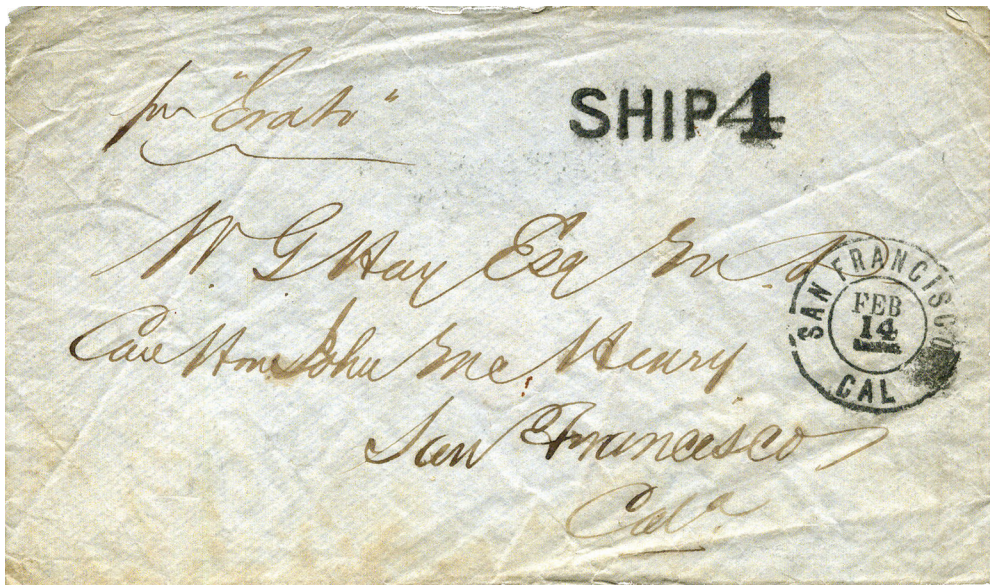 pr "Erato"
SHIP 4
W. G. Hay Esq M. D.
Care Hon John Mc. Henry
San Francisco
Cal.
SAN FRANCISCO
FEB
14
CAL